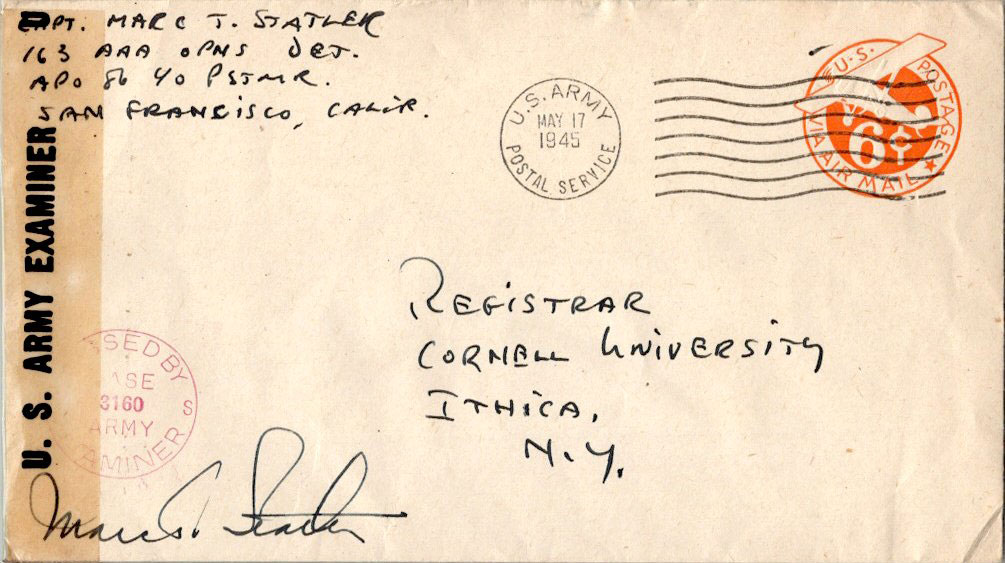 CAPT. MARC T. STATLER
163 AAA OPNS DET.
APO 86 % PSTMR.
SAN FRANCISCO, CALIF.
U. S. ARMY EXAMINER
U.S. ARMY
MAY 17
1945
POSTAL SERVICE
U.S. POSTAGE
6¢
VIA AIR MAIL
REGISTRAR
CORNELL UNIVERSITY
ITHICA,
N.Y.
SED BY
ASE
3160
ARMY
S
AMINER
Marc T. Statler